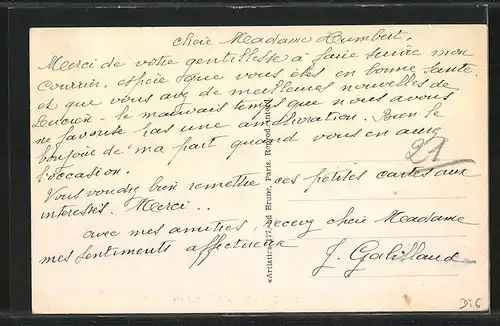 Chère Madame Humbert.
Merci de votre gentillesse à faire suivre mon
courrier, espère que vous êtes en bonne santé
et que vous avez de meilleures nouvelles de
Lucien - le mauvais temps que nous avons
ne favorise pas une amélioration. Bien le
bonjour de ma part quand vous en aurez
l'occasion.
21
Vous voudrez bien remettre ces petites cartes aux
intéressés. Merci..
avec mes amitiés, recevez chère Madame
mes sentiments affectueux
J. Galilland
«Artistic» 77, Bd Brune, Paris. Reprod. interd.
Di6